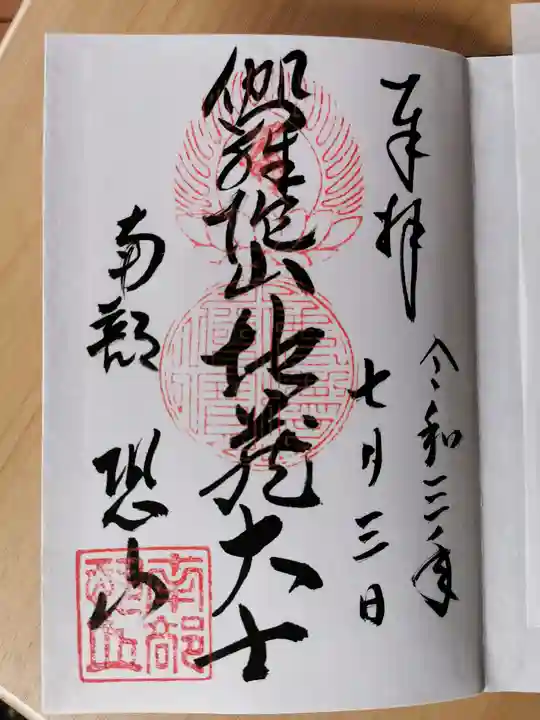 奉拝
令和三年
七月三日
伽羅陀山地蔵大士
南部 恐山
南部